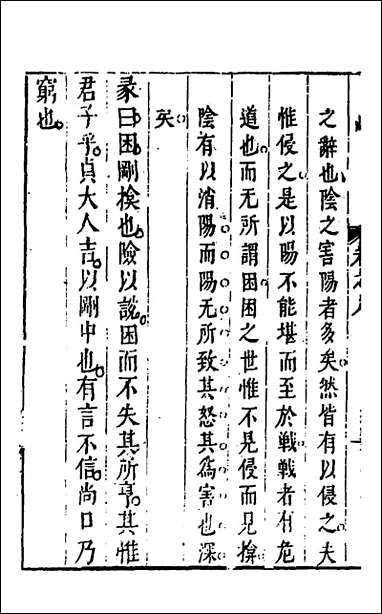 之辭也陰之害陽者多矣然皆有以侵之夫
惟侵之是以陽不能堪而至於戰戰者有危
道也而无所謂困困之世惟不見侵而見揜
陰有以消陽而陽无所致其怒其為害也深
矣
彖曰困剛揜也險以說困而不失其所亨其惟
君子乎貞大人吉以剛中也有言不信尚口乃
窮也